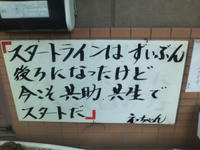 「スタートラインは ずいぶん
後ろになったけど
今こそ 共助、共生で
スタートだ」